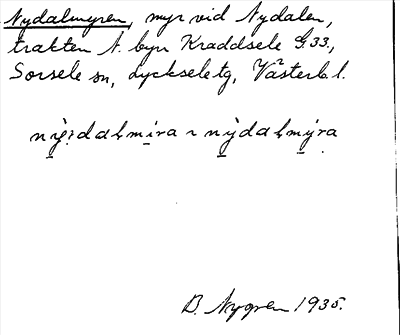 Nydalmyren, myr vid Nydalen,
trakten N. byn Kraddsele G.33.,
Sorsele sn, Lycksele tg, Västerb. l.
nỳ:daḷmi̱ra ~ nỳdaḷmy̱ra
B. Nygren 1935.